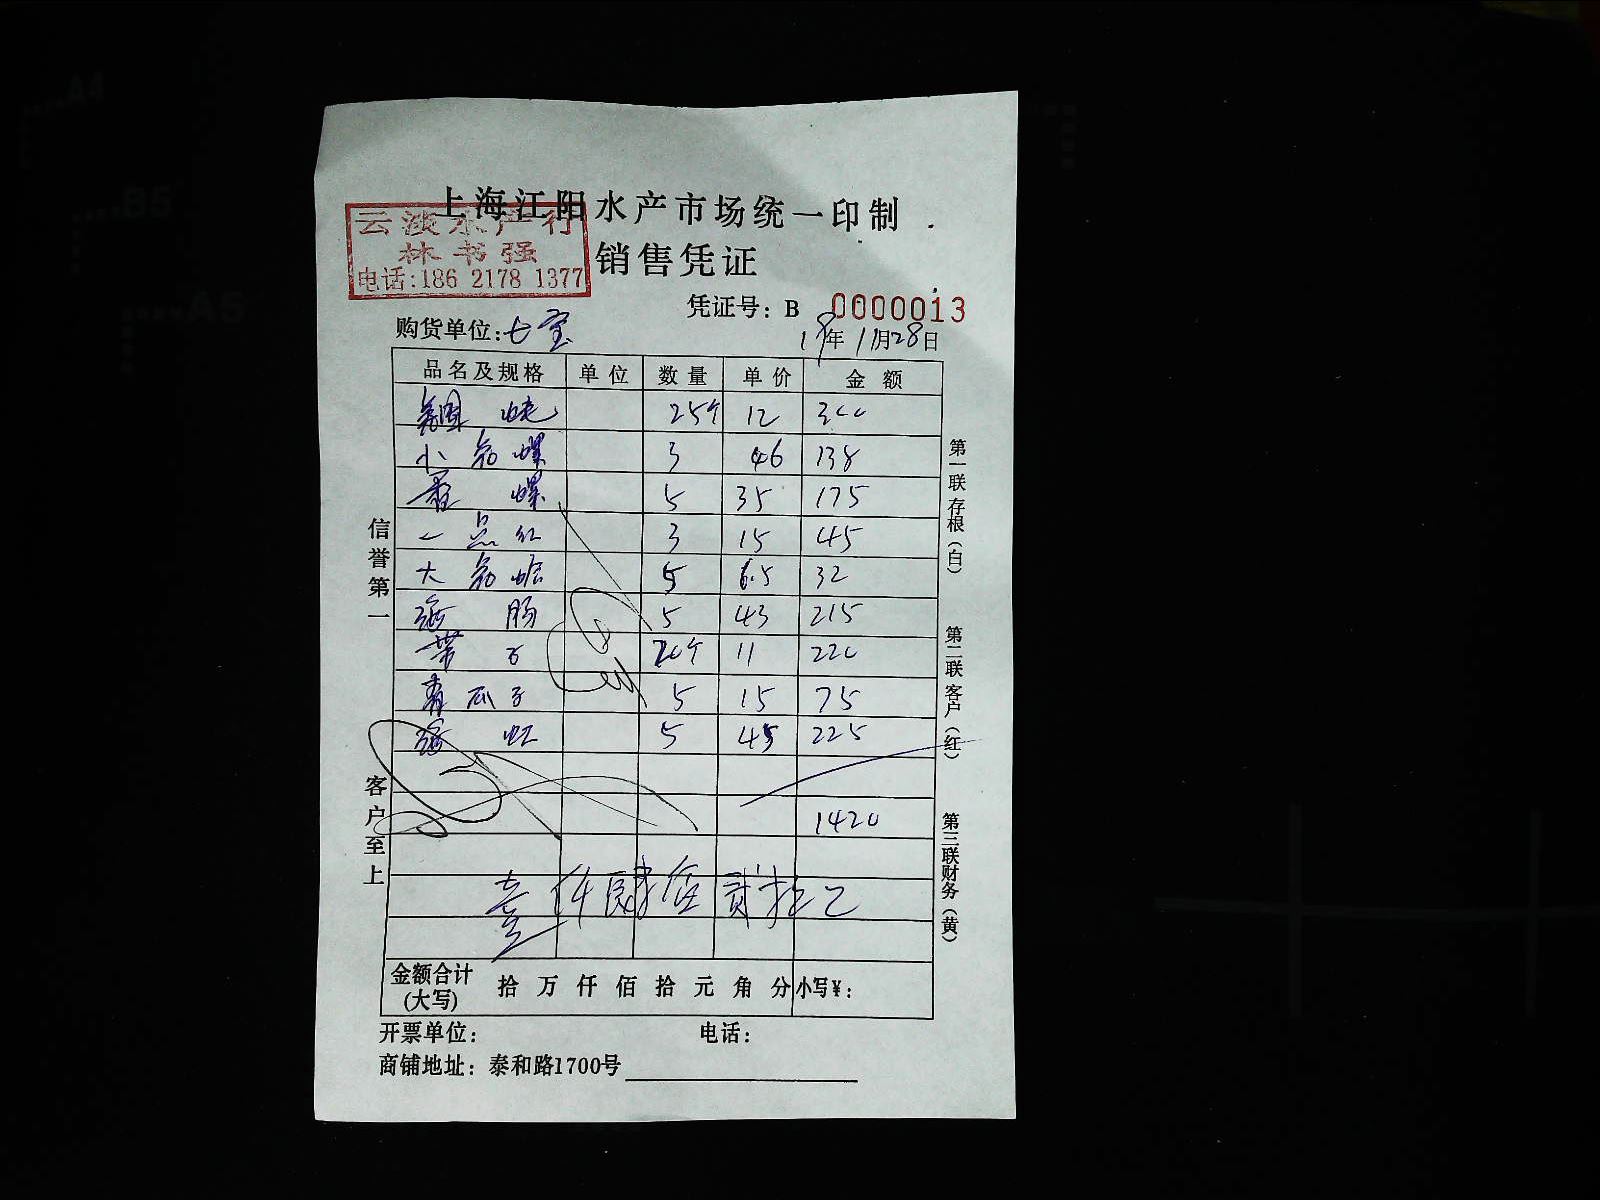 上海江阳水产市场统一印制
云淡水产行
林书强
电话:186 2178 1377
销售凭证
凭证号: B 0000013
购货单位:七宝
19年11月28日
品名及规格 单位 数量 单价 金额
25个 12 300
小 螺 3 46 138
香 螺 5 35 175
一品红 3 15 45
大 5 6.5 32
海肠 5 43 215
带子 20个 11 220
青瓜子 5 15 75
海虹 5 45 225
1420
壹仟肆佰贰拾元
金额合计(大写) 拾 万 仟 佰 拾 元 角 分 小写¥:
开票单位: 电话:
商铺地址: 泰和路1700号
信誉第一
客户至上
第一联存根(白)
第二联客户(红)
第三联财务(黄)
A4
B5
A5